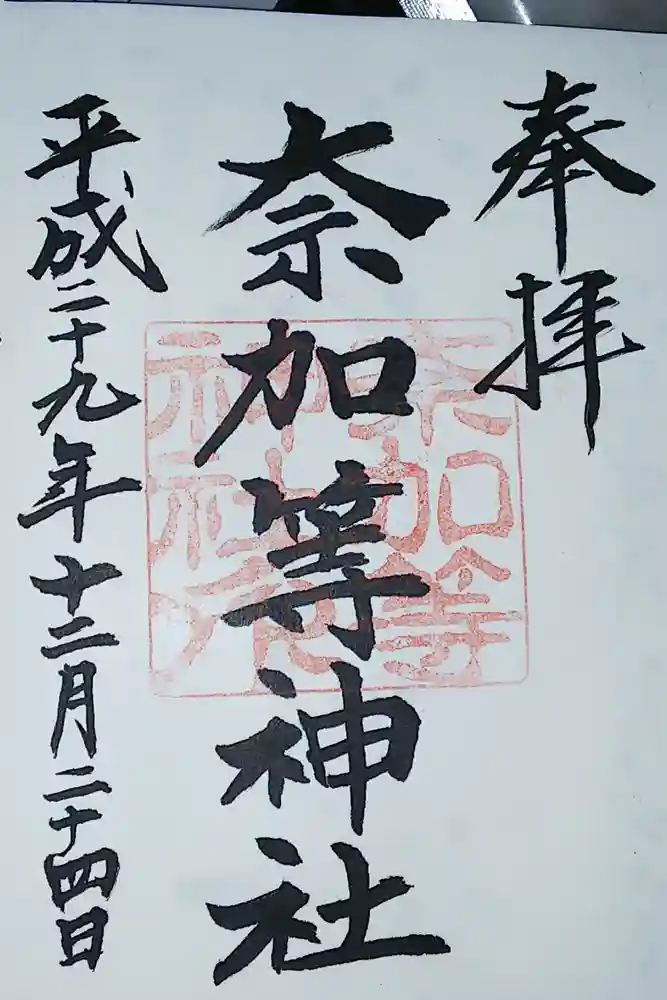 奉拝
奈加等神社
平成二十九年十二月二十四日
奈加等
神社